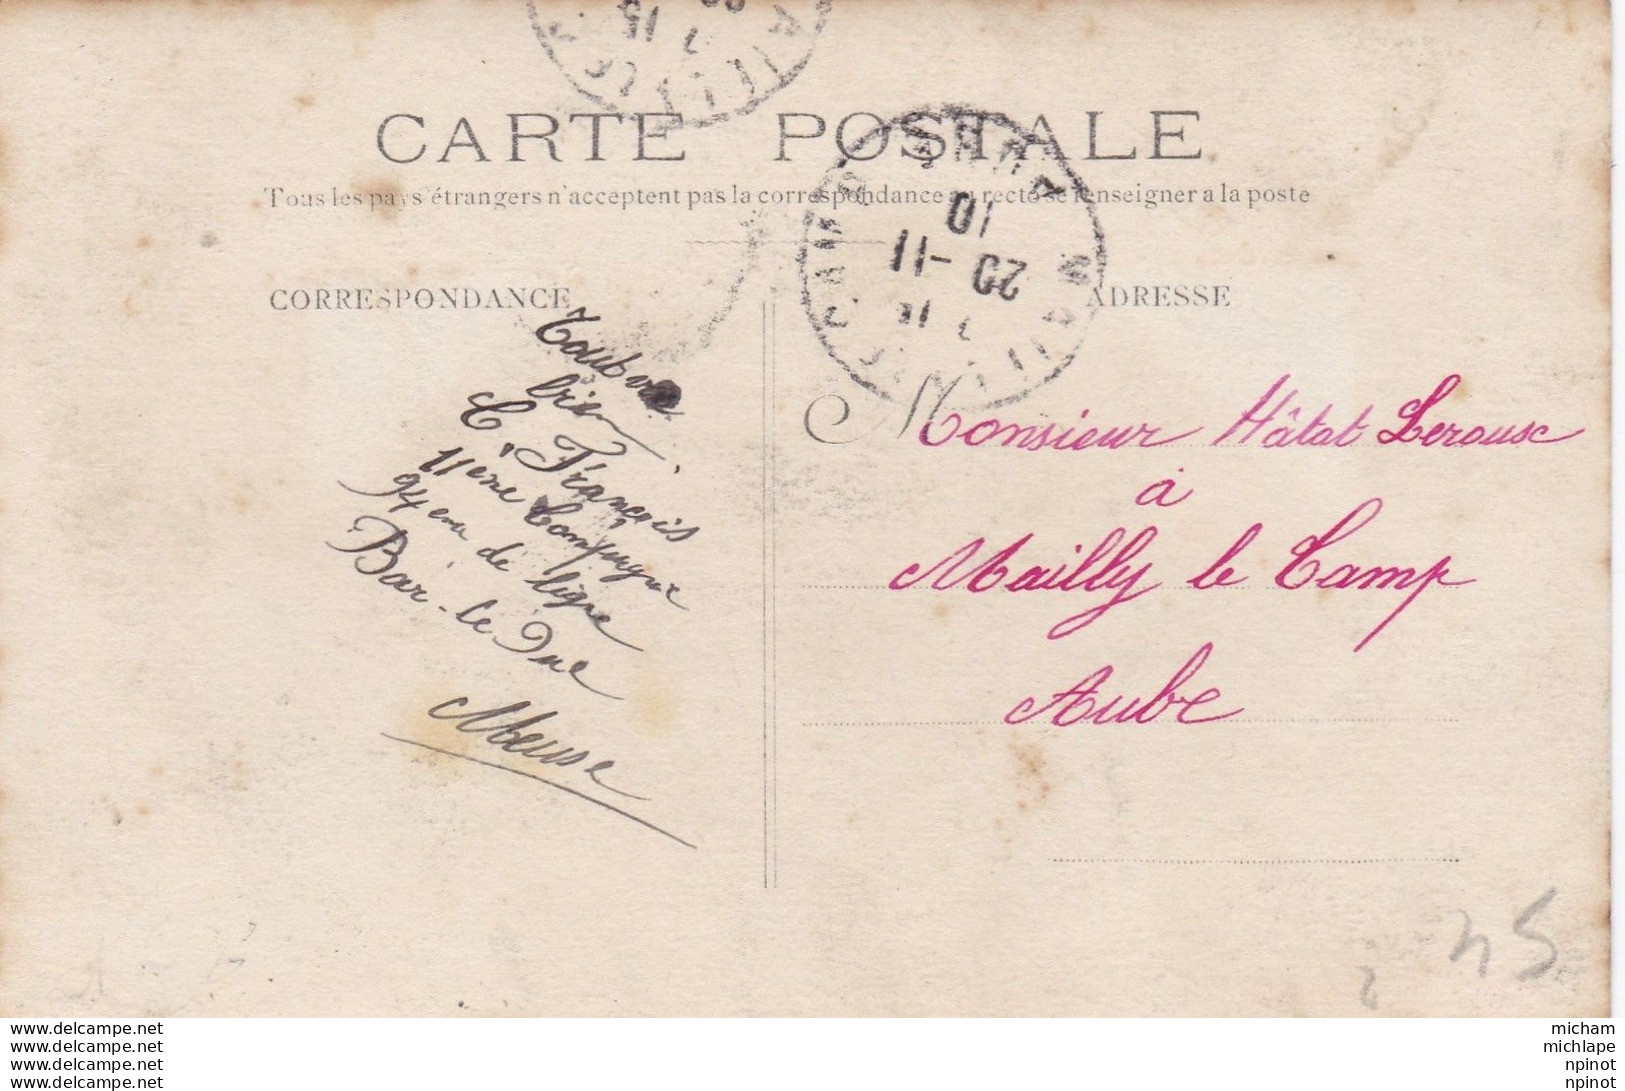 CARTE POSTALE
Tous les pays étrangers n'acceptent pas la correspondance au recto se renseigner a la poste
CORRESPONDANCE
ADRESSE
Tout va
bien
C. François
11ème Compagnie
94eme de ligne
Bar-le-Duc
Meuse
Monsieur Hâtat Lerouse
à
Mailly le Camp
Aube
10
20-11
45
www.delcampe.net
www.delcampe.net
www.delcampe.net
www.delcampe.net
micham
michlape
npinot
npinot